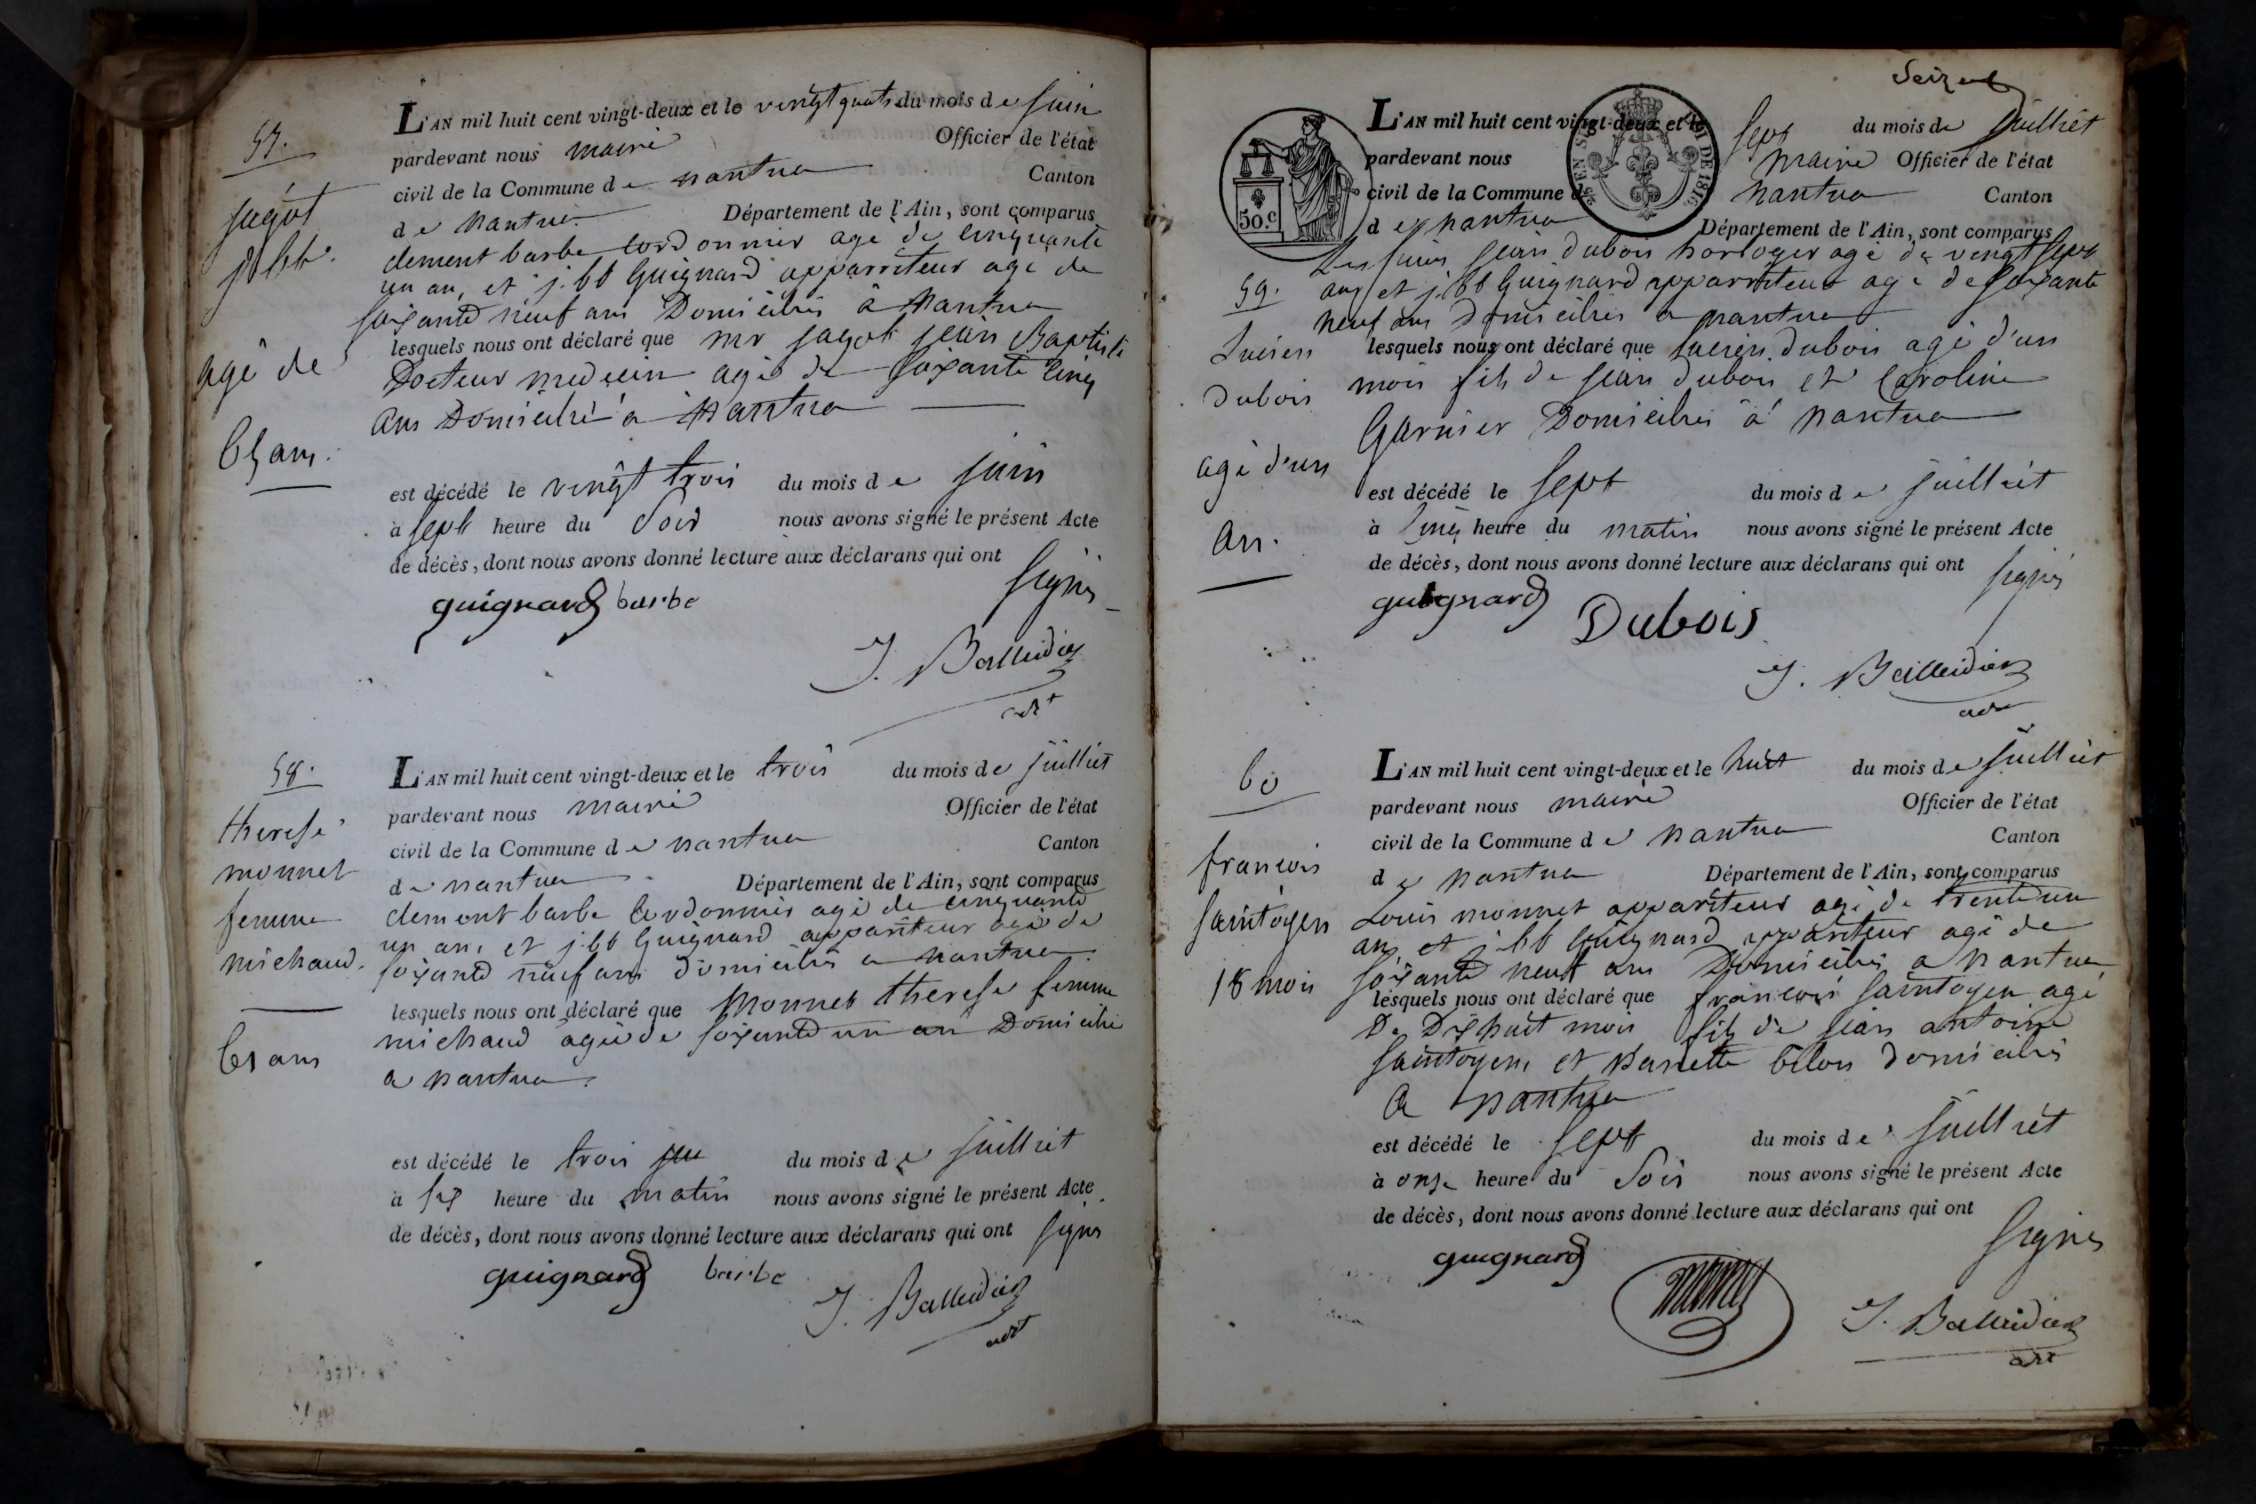 57.
jagot
j. bte.
agé de
65 ans.
L'AN mil huit cent vingt-deux et le vingt quatre du mois de juin
pardevant nous maire Officier de l'état
civil de la Commune de nantua Canton
de nantua Département de l'Ain, sont comparus
clement barbe cordonnier agé de cinquante
un an, et j. bt Guignard apparriteur agé de
soixante neuf ans Domiciliés à Nantua
lesquels nous ont déclaré que mr jagot jean Baptiste
Docteur medecin agé de soixante cinq
ans Domicilié à Nantua
est décédé le vingt trois du mois de juin
à sept heure du soir nous avons signé le présent Acte
de décès, dont nous avons donné lecture aux déclarans qui ont
signés
guignard barbe
J. Balleidier
adt
58.
therese
monnet
femme
michaud.
61 ans
L'AN mil huit cent vingt-deux et le trois du mois de juilliet
pardevant nous maire Officier de l'état
civil de la Commune de nantua Canton
de nantua Département de l'Ain, sont comparus
clement barbe cordonnier agé de cinquante
un an, et j. bt Guignard apparriteur agé de
soixante neuf ans domiciliés a nantua.
lesquels nous ont déclaré que Monnet therese femme
michaud agée de soixante un an Domicilié
a nantua.
est décédé le trois du mois de juilliet
à six heure du matin nous avons signé le présent Acte
de décès, dont nous avons donné lecture aux déclarans qui ont signés
guignard barbe
J. Balleidier
adt
Seize
50.c
LOI DE 1816
L'AN mil huit cent vingt-deux et le sept du mois de juilliet
pardevant nous maire Officier de l'état
civil de la Commune de nantua Canton
de nantua Département de l'Ain, sont comparus
Les sieurs jean dubois horloger agé de vingt sept
ans et j. bt Guignard apparriteur agé de soixante
neuf ans domiciliés a nantua
59.
Lucien
Dubois
agé d'un
an.
lesquels nous ont déclaré que lucien dubois agé d'un
mois fils de jean dubois et Caroline
Garnier Domiciliés à nantua
est décédé le sept du mois de juilliet
à cinq heure du matin nous avons signé le présent Acte
de décès, dont nous avons donné lecture aux déclarans qui ont
signés
guignard Dubois
J. Balleidier
adt
60
francois
saintoyen
18 mois
L'AN mil huit cent vingt-deux et le huit du mois de juilliet
pardevant nous maire Officier de l'état
civil de la Commune de nantua Canton
de nantua Département de l'Ain, sont comparus
Louis monnet appariteur agé de trente un
an, et j. bt Guignard appariteur agé de
soixante neuf ans Domiciliés a nantua
lesquels nous ont déclaré que francois saintoyen agé
De Dix huit mois fils de jean antoine
saintoyen, et Nanette bilon domiciliés
a nantua
est décédé le sept du mois de juilliet
à onze heure du soir nous avons signé le présent Acte
de décès, dont nous avons donné lecture aux déclarans qui ont
signés
guignard
J. Balleidier
adt